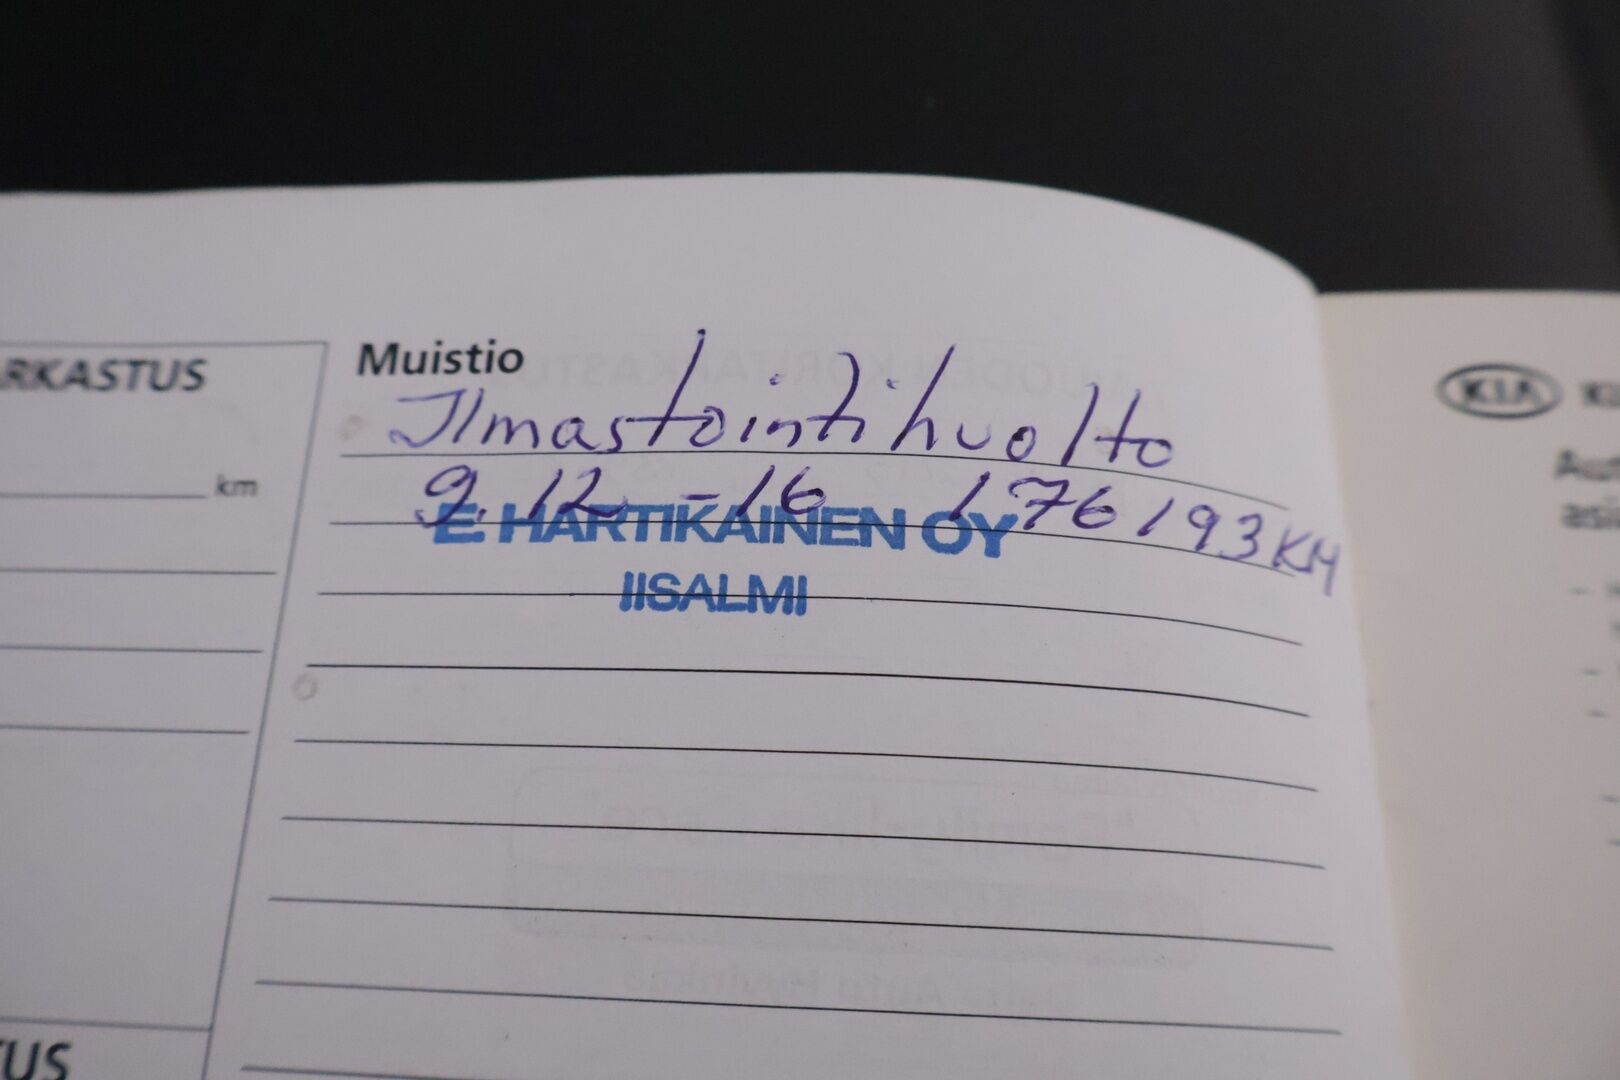 RKASTUS
km
Muistio
Ilmastointihuolto
9.12 -16 176193KM
E. HARTIKAINEN OY
IISALMI
TUS
KIA